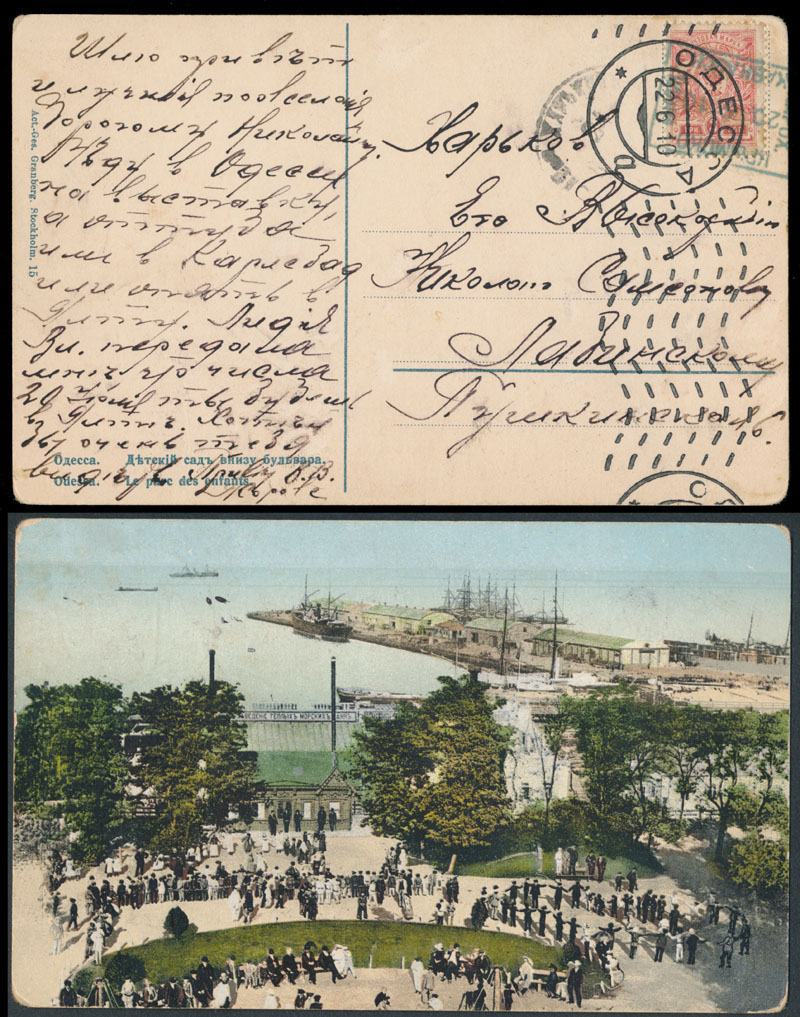 Шлю привѣтъ
дорогому Николаю
Ѣду въ Одессу
на выставку,
а оттуда
или в Карлсбад
или опять в
Ялту. Лидія
Вл. передала
мнѣ что числа
20 Іюня ты будешь
в Ялтѣ. Хотѣлъ
бы очень тебя
Act.-Ges. Granberg, Stockholm. 15
Одесса. Дѣтскій садъ внизу бульвара.
Odessa. Le parc des enfants.
ОДЕССА
22.6.10
Харьков
Его Высокородію
Николаю Семеновичу
Лабинскому
Пушкинская
ВЕДЕНІЕ ТЕПЛЫХЪ МОРСКИХЪ ВАННЪ